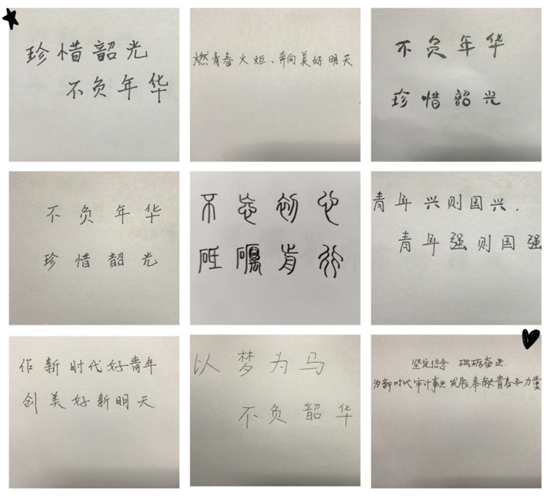 珍惜韶光
不负年华
燃青春火炬、奔向美好明天
不负年华
珍惜韶光
不负年华
珍惜韶光
不忘初心
砥礪前行
青年兴则国兴，
青年强则国强
作新时代好青年
创美好新明天
以梦为马
不负韶华
坚定信念 砥砺奋进
为新时代审计事业发展奉献青春和力量